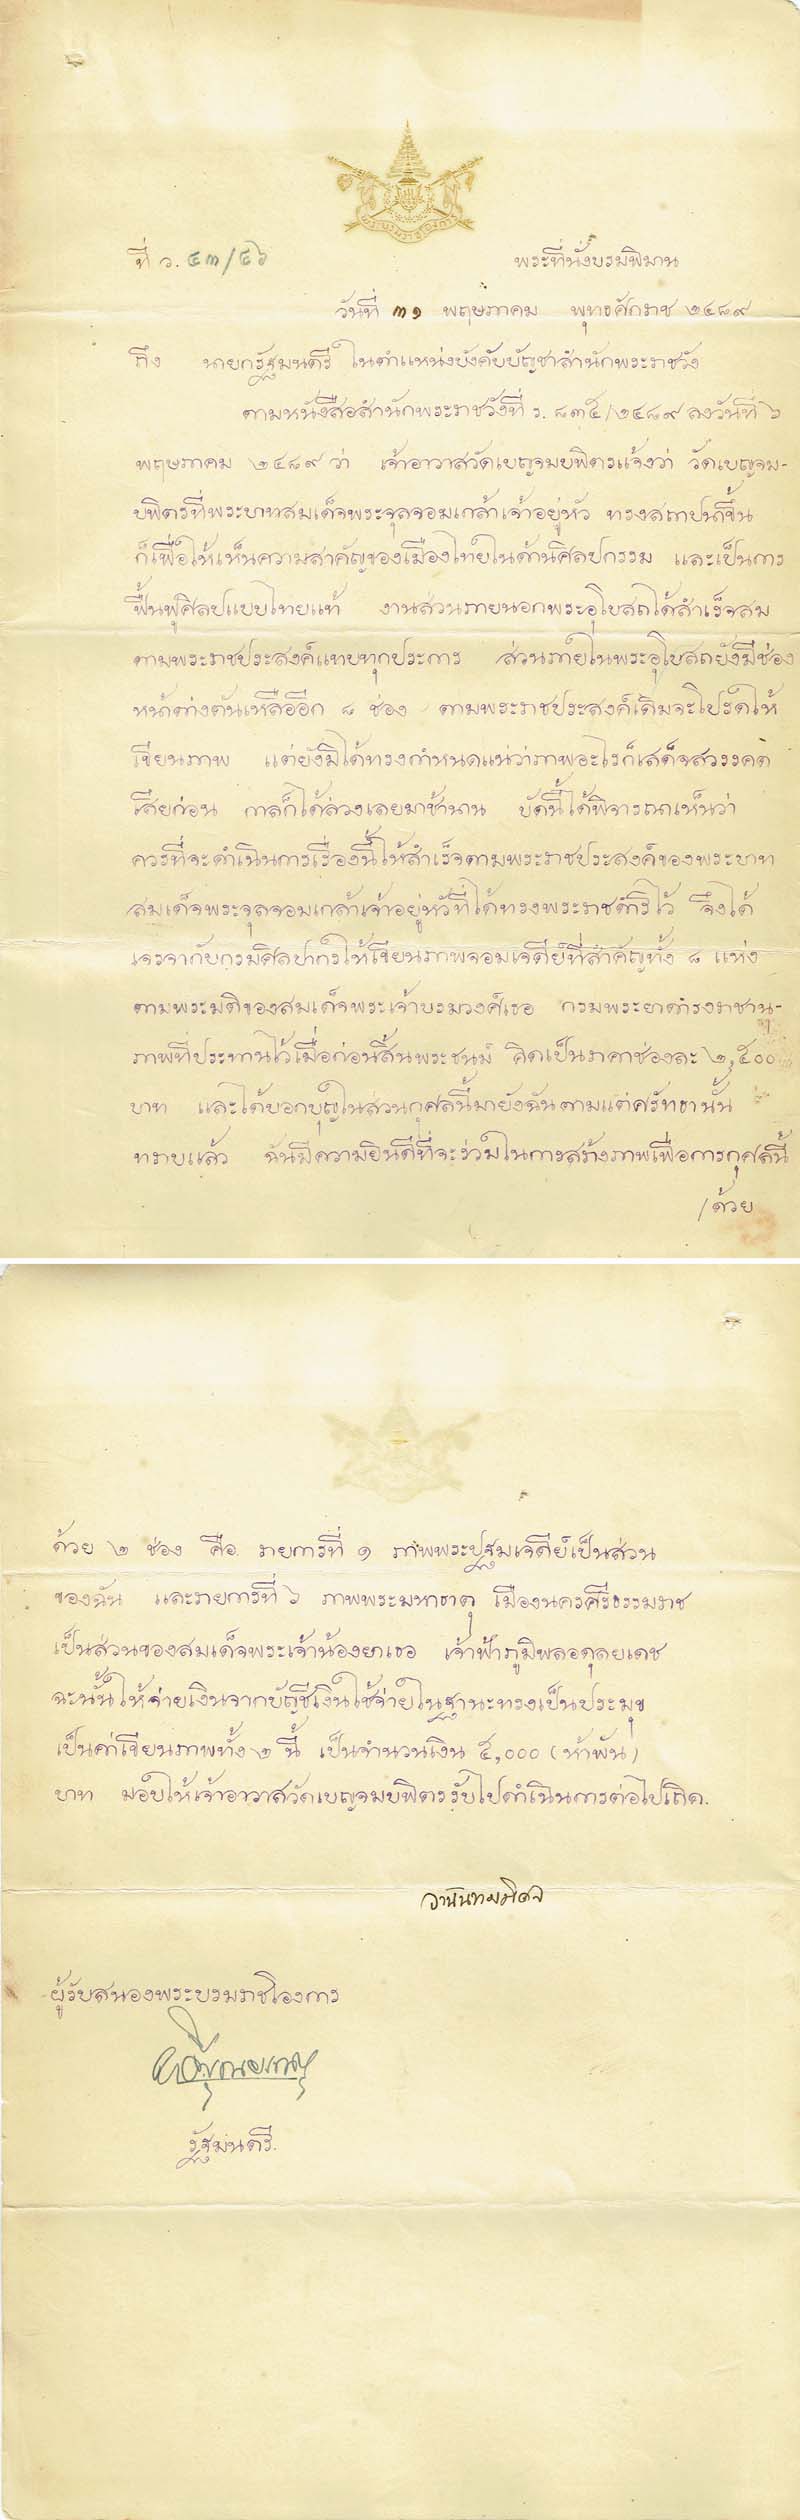 พระบรมราชโองการ
ที่ ว. ๔๓/๔๖
พระที่นั่งบรมพิมาน
วันที่ ๓๑ พฤษภาคม พุทธศักราช ๒๔๘๙
ถึง นายกรัฐมนตรี ในตำแหน่งบังคับบัญชาสำนักพระราชวัง
ตามหนังสือสำนักพระราชวังที่ ร. ๘๓๕/๒๔๘๙ ลงวันที่ ๖
พฤษภาคม ๒๔๘๙ ว่า เจ้าอาวาสวัดเบญจมบพิตรแจ้งว่า วัดเบญจม-
บพิตรที่พระบาทสมเด็จพระจุลจอมเกล้าเจ้าอยู่หัว ทรงสถาปนาขึ้น
ก็เพื่อให้เห็นความสำคัญของเมืองไทยในด้านศิลปกรรม และเป็นการ
ฟื้นฟูศิลปแบบไทยแท้ งานส่วนภายนอกพระอุโบสถได้สำเร็จสม
ตามพระราชประสงค์แทบทุกประการ ส่วนภายในพระอุโบสถยังมีช่อง
หน้าต่างตันเหลืออีก ๘ ช่อง ตามพระราชประสงค์เดิมจะโปรดให้
เขียนภาพ แต่ยังมิได้ทรงกำหนดแน่ว่าภาพอะไรก็เสด็จสวรรคต
เสียก่อน กาลก็ได้ล่วงเลยมาช้านาน บัดนี้ได้พิจารณาเห็นว่า
ควรที่จะดำเนินการเรื่องนี้ให้สำเร็จตามพระราชประสงค์ของพระบาท
สมเด็จพระจุลจอมเกล้าเจ้าอยู่หัวที่ได้ทรงพระราชดำริไว้ จึงได้
เจรจากับกรมศิลปากรให้เขียนภาพจอมเจดีย์ที่สำคัญทั้ง ๘ แห่ง
ตามพระมติของสมเด็จพระเจ้าบรมวงศ์เธอ กรมพระยาดำรงราชานุ-
ภาพที่ประทานไว้เมื่อก่อนสิ้นพระชนม์ คิดเป็นราคาช่องละ ๒,๕๐๐
บาท และได้บอกบุญในส่วนกุศลนี้มายังฉันตามแต่ศรัทธานั้น
ทราบแล้ว ฉันมีความยินดีที่จะร่วมในการสร้างภาพเพื่อการกุศลนี้
/ด้วย
ด้วย ๒ ช่อง คือ รายการที่ ๑ ภาพพระปฐมเจดีย์เป็นส่วน
ของฉัน และรายการที่ ๖ ภาพพระมหาธาตุ เมืองนครศรีธรรมราช
เป็นส่วนของสมเด็จพระเจ้าน้องยาเธอ เจ้าฟ้าภูมิพลอดุลยเดช
ฉะนั้นให้จ่ายเงินจากบัญชีเงินใช้จ่ายในฐานะทรงเป็นประมุข
เป็นค่าเขียนภาพทั้ง ๒ นี้ เป็นจำนวนเงิน ๕,๐๐๐ (ห้าพัน)
บาท มอบให้เจ้าอาวาสวัดเบญจมบพิตรรับไปดำเนินการต่อไปเถิด.
อานันทมหิดล
ผู้รับสนองพระบรมราชโองการ
รัฐมนตรี.